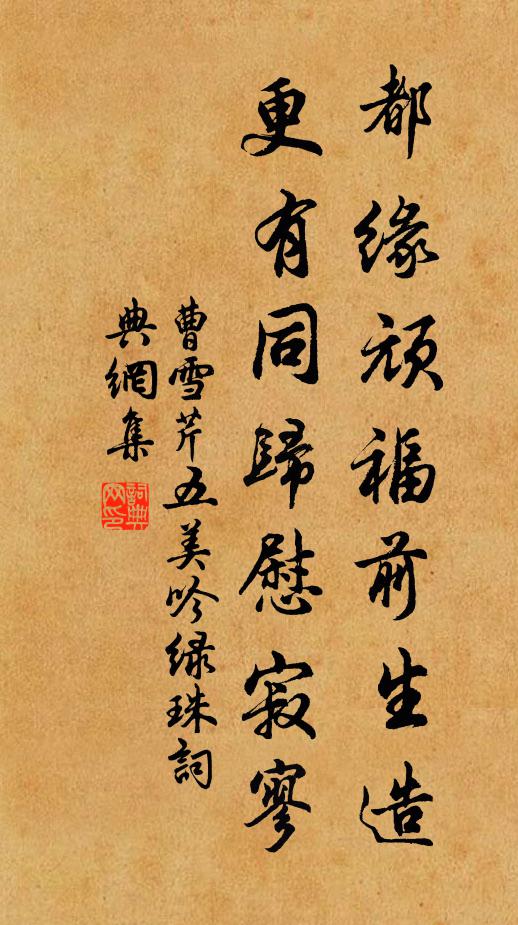 都緣頑福前生造
更有同歸慰寂寥
曹雪芹五美吟绿珠詞
典網集
詞典
网印